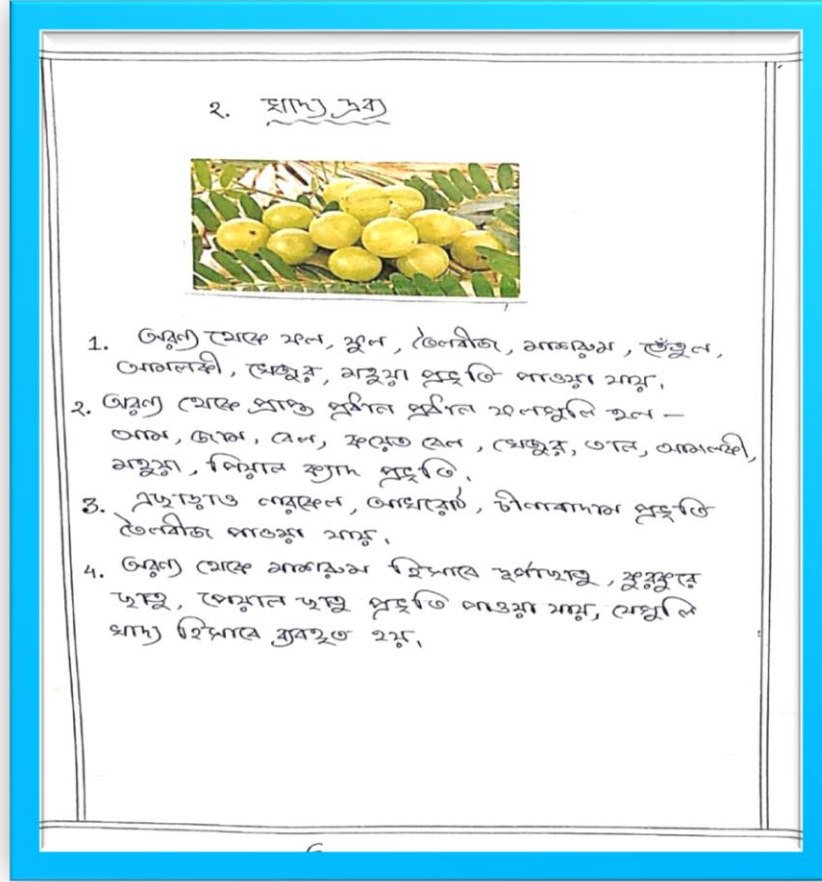 ২. খাদ্য দ্রব্য
1. অরণ্য থেকে ফল, ফুল, তৈলবীজ, মাশরুম, তেঁতুল,
আমলকী, খেজুর, মহুয়া প্রভৃতি পাওয়া যায়।
২. অরণ্য থেকে প্রাপ্ত প্রধান প্রধান ফলগুলি হল -
আম, জাম, বেল, কয়েত বেল, খেজুর, তাল, আমলকী,
মহুয়া, পিয়াল প্রভৃতি।
3. এছাড়াও নারকেল, আখরোট, চীনাবাদাম প্রভৃতি
তৈলবীজ পাওয়া যায়।
4. অরণ্য থেকে মাশরুম হিসাবে দূর্গাছাতু, কুরকুরে
ছাতু, পোয়াল ছাতু প্রভৃতি পাওয়া যায়, যেগুলি
খাদ্য হিসাবে ব্যবহৃত হয়।